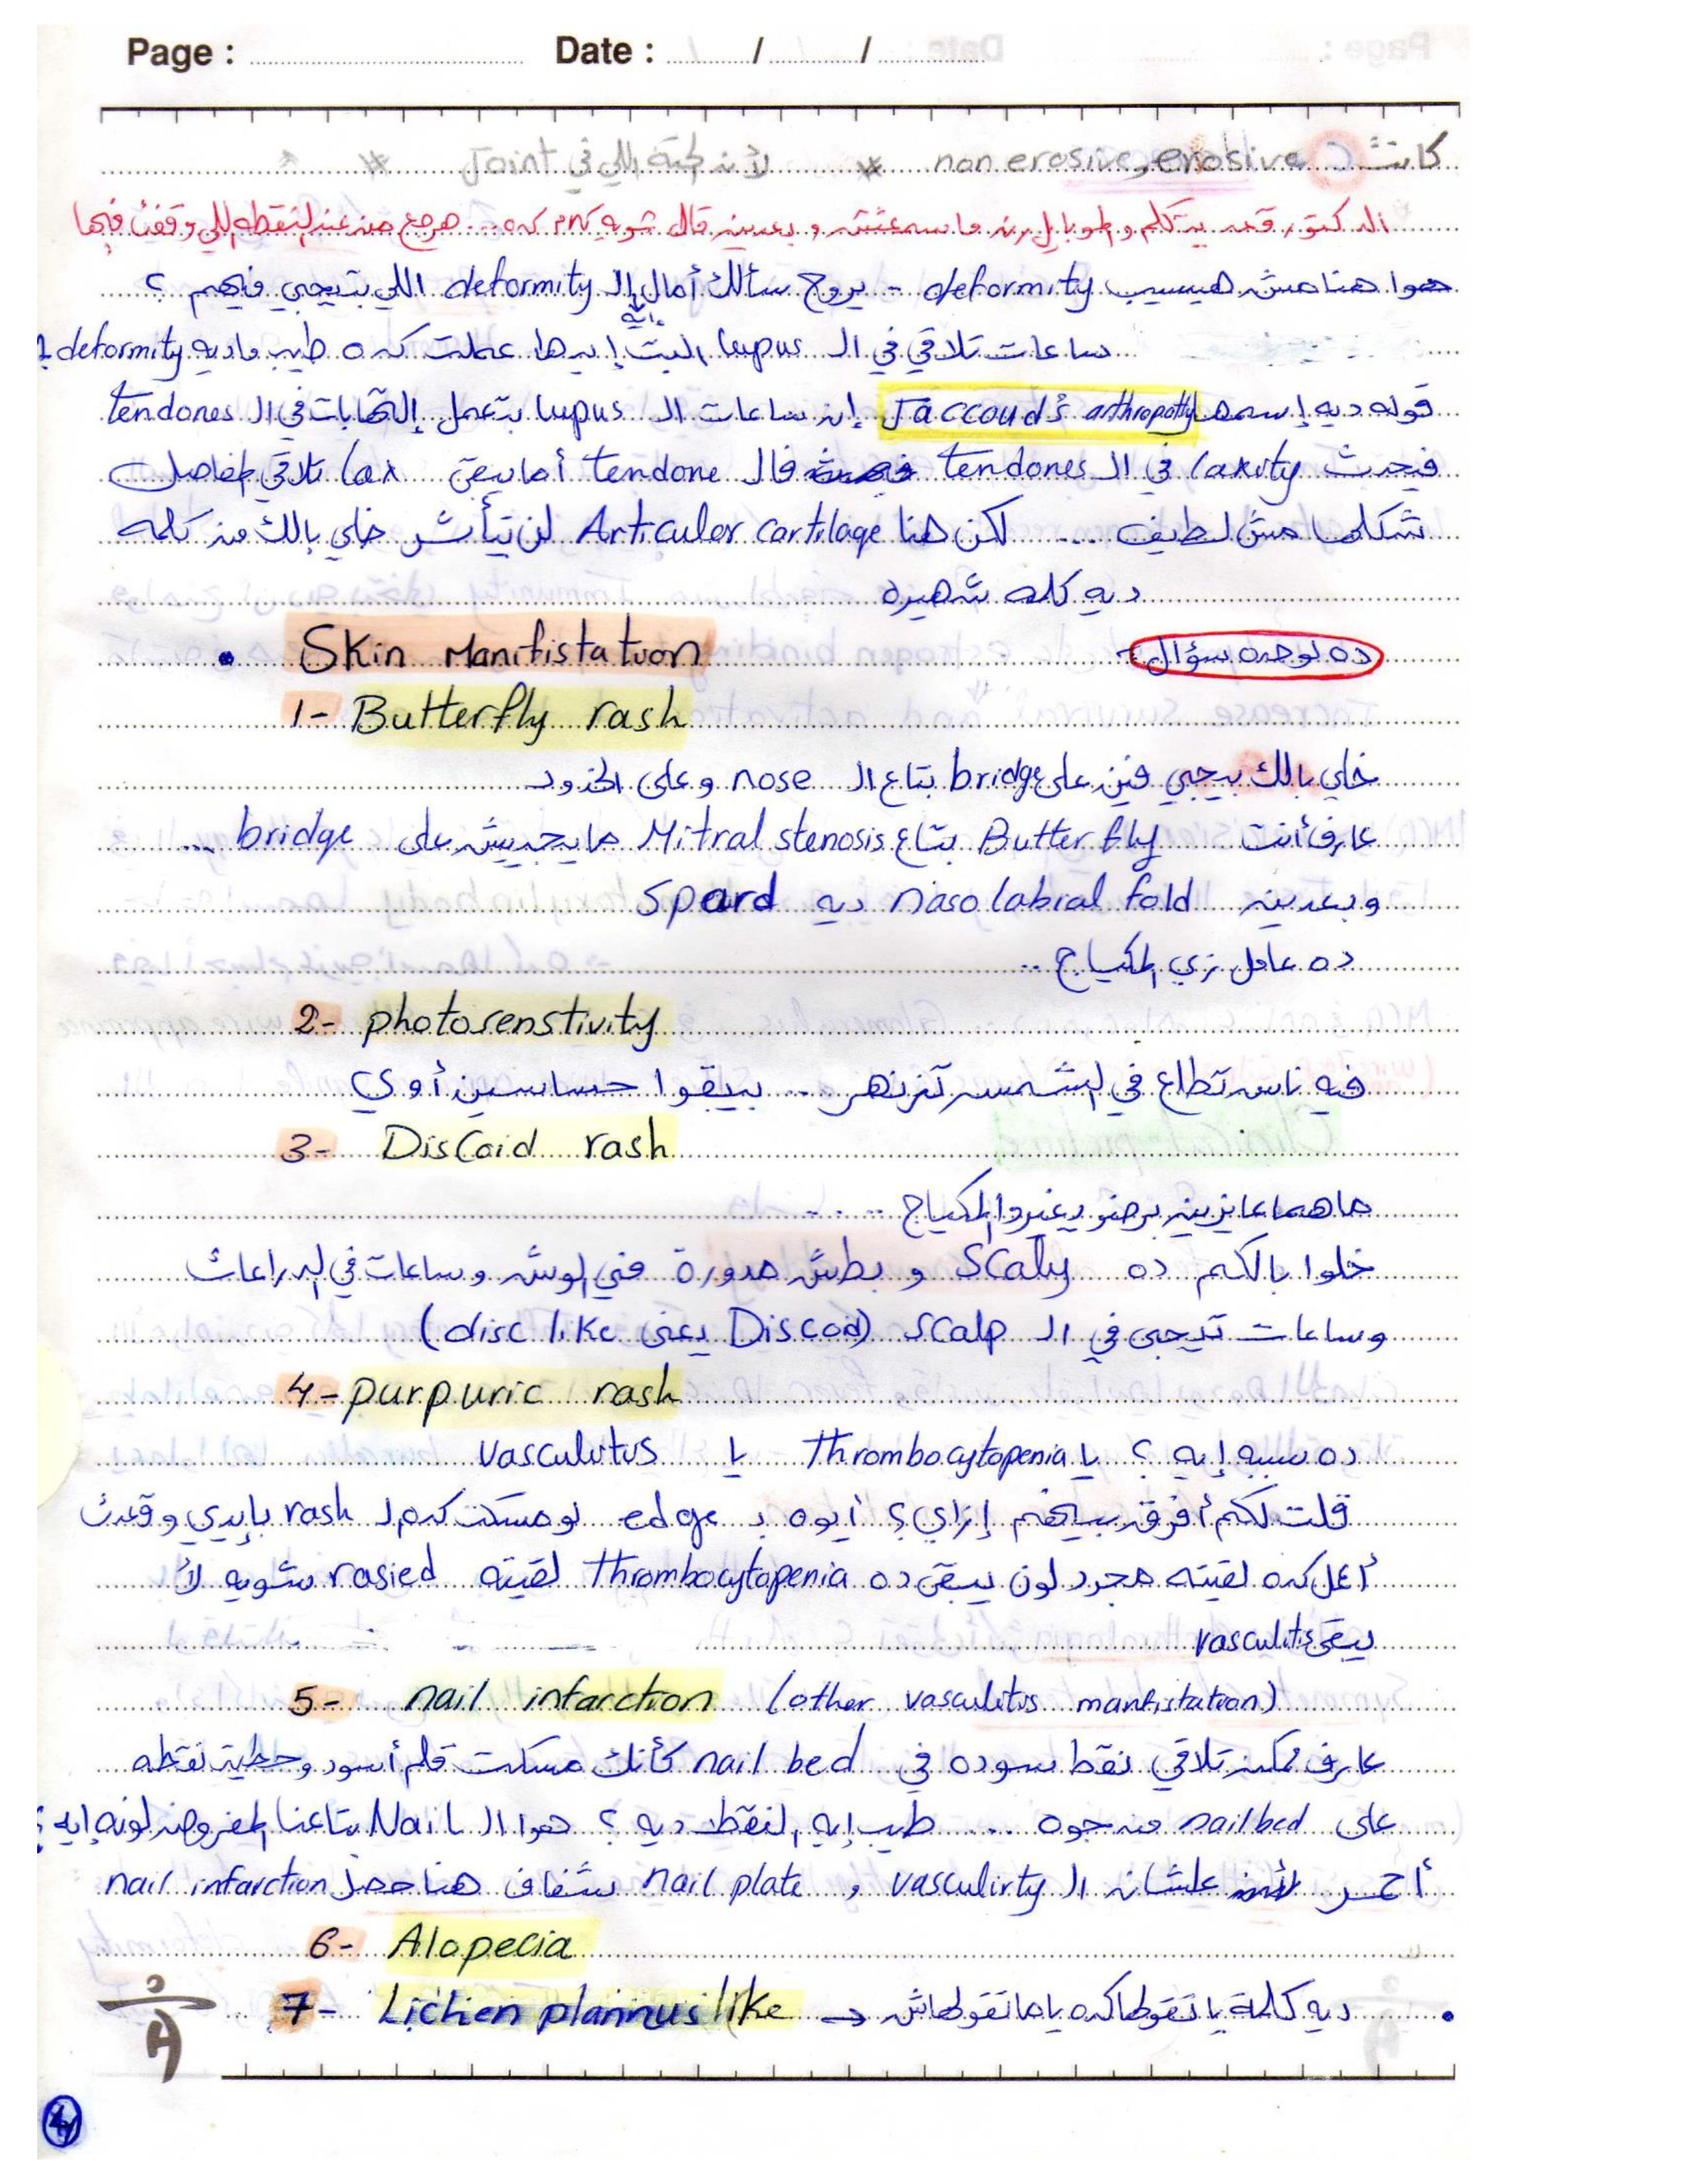 Page : Date : / /
كانت non erosive, erosive * لأن الحتة اللي في Joint *
الدكتور قعد يتكلم والموبايل رن ما سمعتش وبعدين قال شويه كلام كده... هرجع من عند النقطه اللي وقفت فيها
هوا هنا مش هيسيب deformity - يروح سألك أمال إيه ال deformity اللي بتيجي فيهم ؟
ساعات تلاقي في ال lupus البت إيدها عملت كده طيب ماديه deformity ؟
قوله ديه إسمها Jaccoud's arthropathy إن ساعات ال lupus بتعمل إلتهابات في ال tendones
فيحدث laxity في ال tendones فال tendone أما يبقى lax تلاقي المفاصل
شكلها مش لطيف .... لكن هنا Articular cartilage لن يتأثر خلي بالك من كلمه
ديه كلمه شهيره
• Skin Manifistation ده لوحده سؤال
1- Butterfly rash
خلي بالك بيجي فين على bridge بتاع ال nose وعلى الخدود
عارف أنت Butterfly بتاع Mitral stenosis ما يجيش على bridge ...
وبعدين nasolabial fold ديه spard
ده عامل زي المكياج ..
2- photosenstivity
فيه ناس تطلع في الشمس تزنهر ... بيبقوا حساسين أوي
3- Discoid rash
ما هما عايزين برضو يغيروا المكياج ....
خلوا بالكم ده Scaly و بطش مدورة في الوش وساعات في الدراعات
وساعات تيجي في ال scalp (Discoid يعنى disc like)
4- purpuric rash
ده سببه إيه ؟ يا Thrombocytopenia يا vasculitus
قلت لكم أفرق بينهم إزاي ؟ أيوه بـ edge لو مسكت كده ال rash بإيدي وقعدت
أعمل كده لقيته مجرد لون يبقى ده Thrombocytopenia لقيته rasied شويه لأ
يبقى vasculitis
5- nail infarction (other vasculitis manfistation)
عارف ممكن تلاقي نقط سوده في nail bed كأنك مسكت قلم أسود وحطيت نقطه
على nail bed من جوه .... طيب إيه النقط ديه ؟ هوا ال Nail بتاعنا المفروض لونه إيه ؟
أحمر علشان ال vasculirty و nail plate شفاف هنا حصل nail infarction
6- Alopecia
7- Lichen plannus like → ديه كلمة يا تقولها كده يا ما تقولهاش •
4